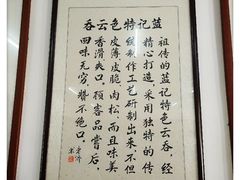 蓝记特色云吞
祖传的蓝记特色云吞，经
精心打造采用独特的传
统制作工艺研制出来，不但
皮薄，皮脆，肉松，而且味美
香滑爽口，顾客品尝后，
回味无穷，赞不绝口